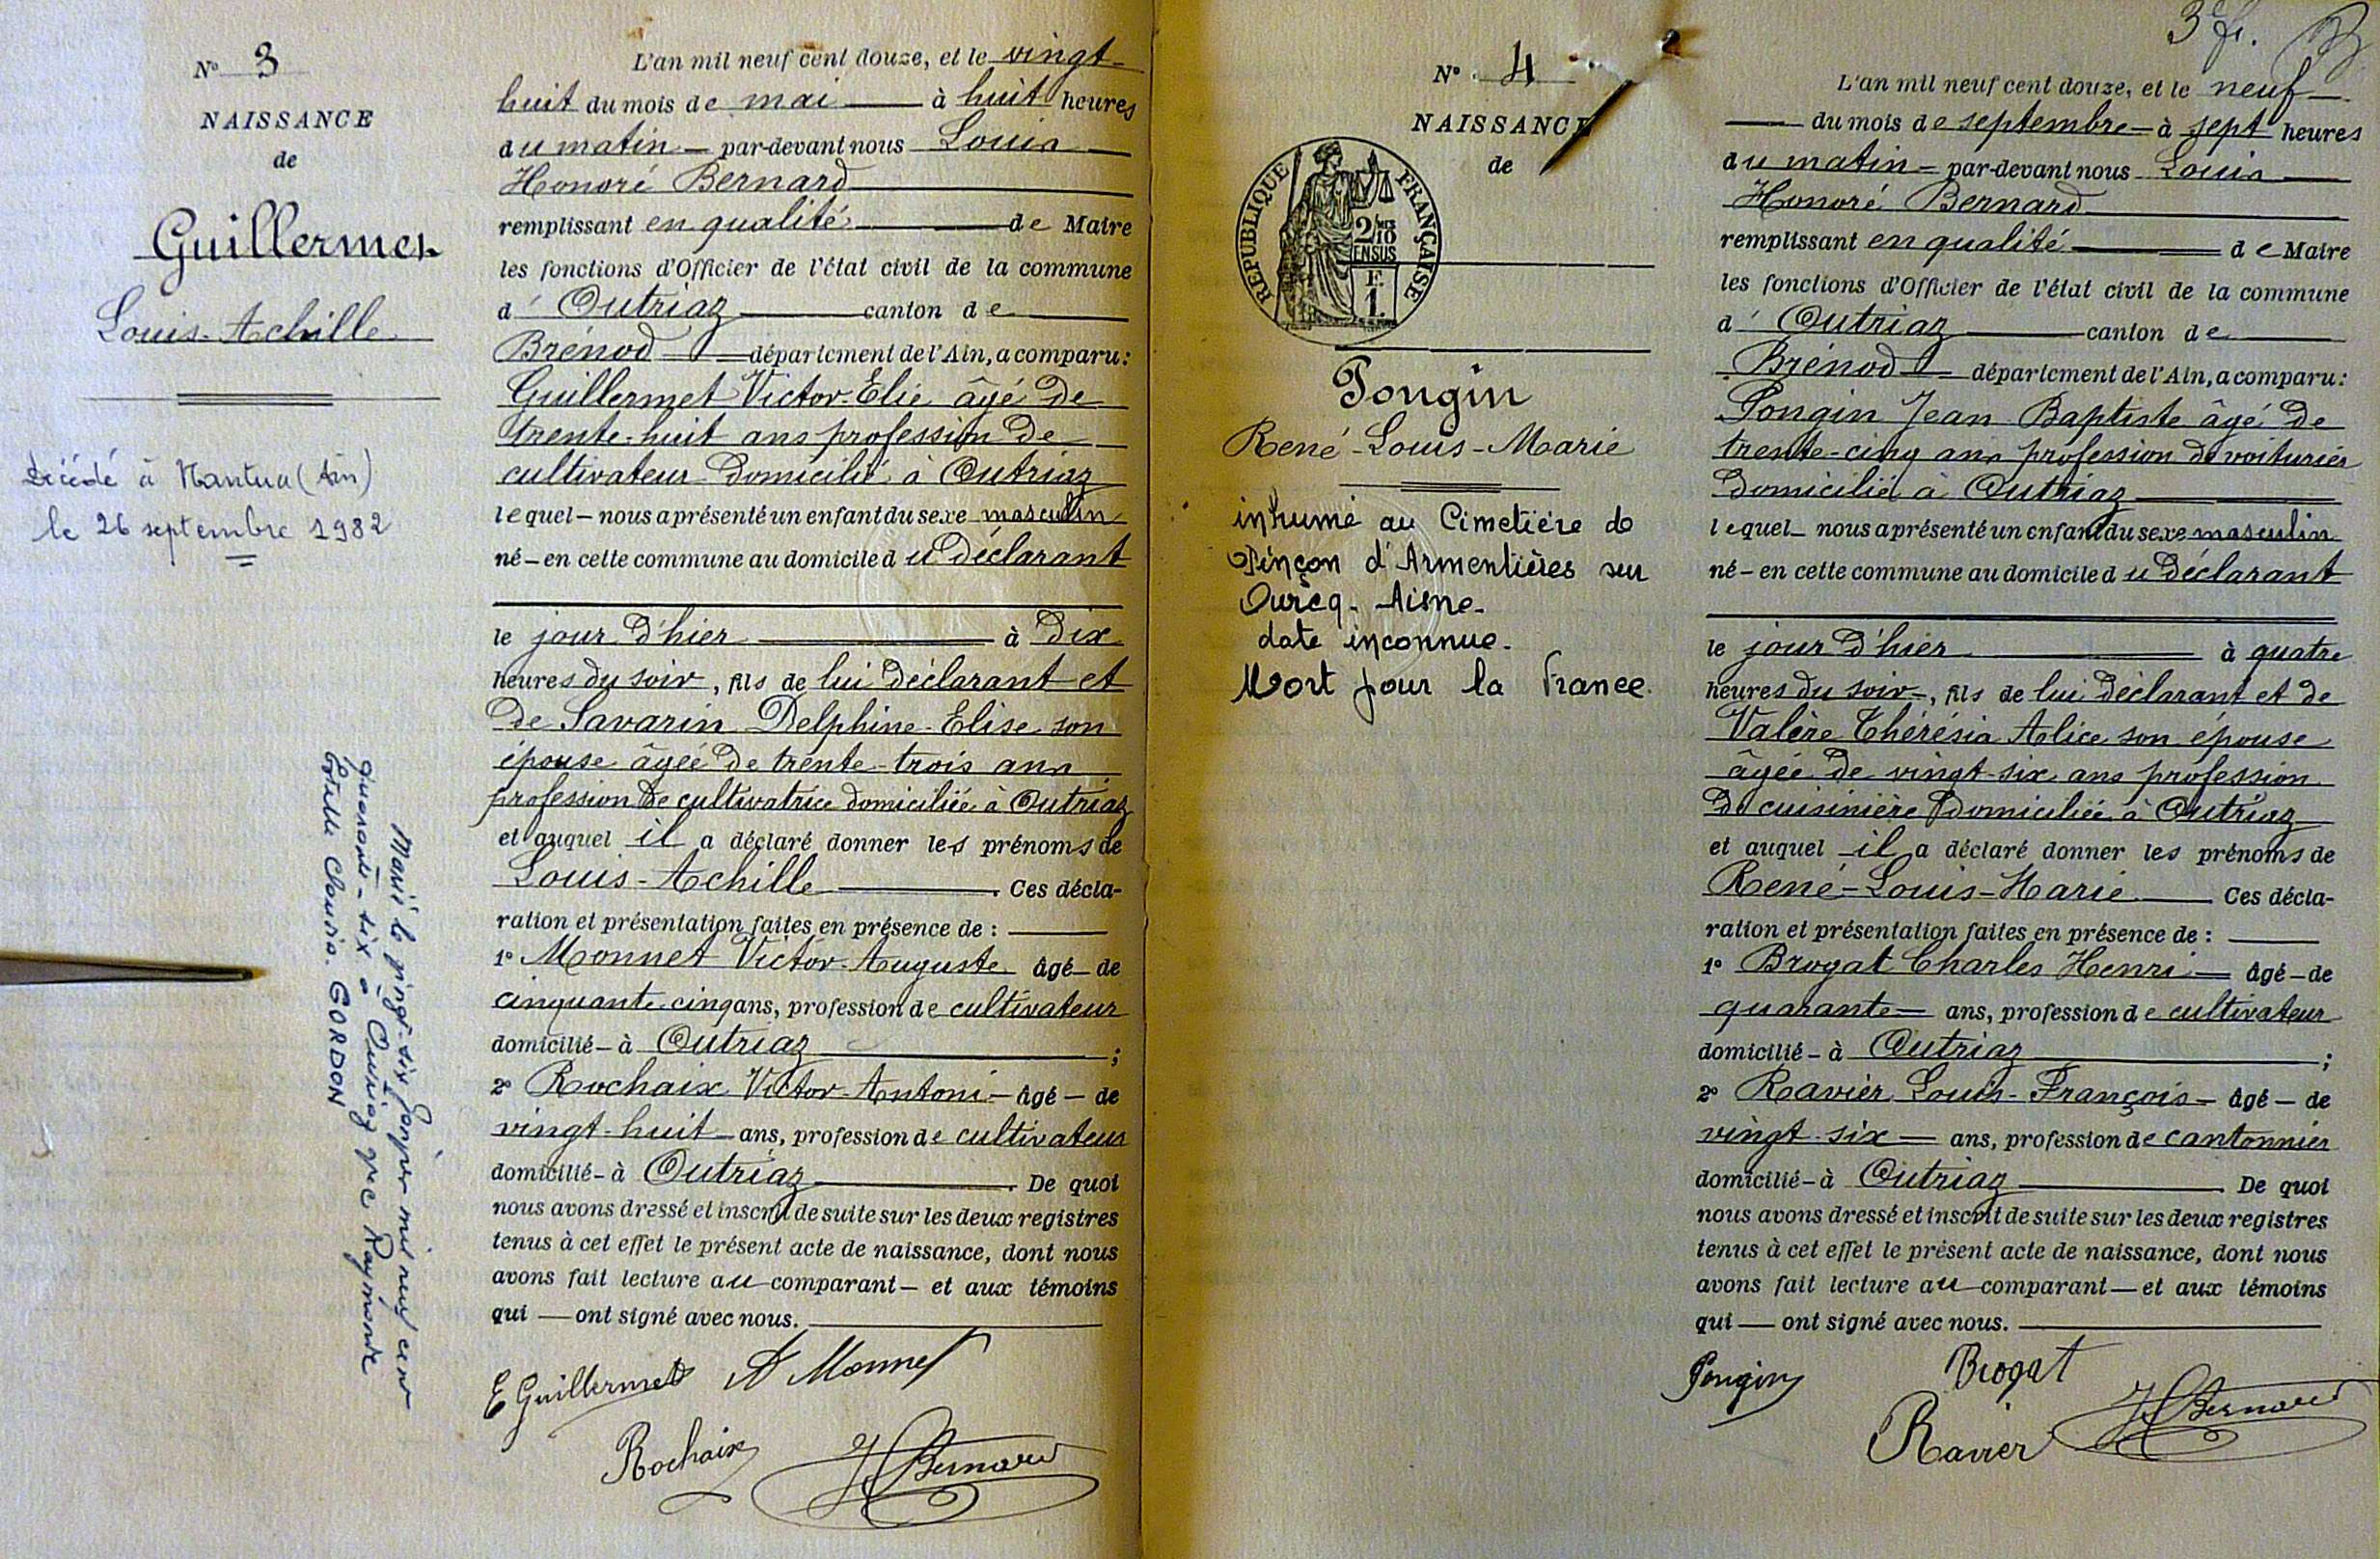 N° 3
NAISSANCE
de
Guillermet
Louis-Achille
Décédé à Nantua (Ain)
le 26 septembre 1982
Marié le vingt-six janvier mil neuf cent
quarante-six à Outriaz avec Raymonde
Estelle Clauvis GORDON
L'an mil neuf cent douze, et le vingt-
huit du mois de mai à huit heures
du matin par-devant nous Louis
Honoré Bernard
remplissant en qualité de Maire
les fonctions d'Officier de l'état civil de la commune
d' Outriaz canton de
Brénod département de l'Ain, a comparu :
Guillermet Victor-Elie âgé de
trente-huit ans profession de
cultivateur domicilié à Outriaz
lequel – nous a présenté un enfant du sexe masculin
né – en cette commune au domicile du déclarant
le jour d'hier à dix
heures du soir, fils de lui déclarant et
de Savarin Delphine-Elise son
épouse âgée de trente-trois ans
profession de cultivatrice domiciliée à Outriaz
et auquel il a déclaré donner les prénoms de
Louis-Achille. Ces décla-
ration et présentation faites en présence de :
1° Monnet Victor-Auguste âgé – de
cinquante-cinq ans, profession de cultivateur
domicilié – à Outriaz ;
2° Rochaix Victor-Antoni – âgé – de
vingt-huit ans, profession de cultivateur
domicilié – à Outriaz. De quoi
nous avons dressé et inscrit de suite sur les deux registres
tenus à cet effet le présent acte de naissance, dont nous
avons fait lecture au comparant – et aux témoins
qui — ont signé avec nous.
E Guillermet A Monnet
Rochaix H Bernard
3e f.
N° 4
NAISSANCE
de
RÉPUBLIQUE FRANÇAISE
2/10
EN SUS
F.
1.
Pongin
René-Louis-Marie
inhumé au Cimetière de
Pinçon d'Armentières sur
Ourcq. Aisne.
date inconnue.
Mort pour la France.
L'an mil neuf cent douze, et le neuf
du mois de septembre à sept heures
du matin par-devant nous Louis
Honoré Bernard
remplissant en qualité de Maire
les fonctions d'Officier de l'état civil de la commune
d' Outriaz canton de
Brénod département de l'Ain, a comparu :
Pongin Jean-Baptiste âgé de
trente-cinq ans profession de voiturier
domicilié à Outriaz
lequel – nous a présenté un enfant du sexe masculin
né – en cette commune au domicile du déclarant
le jour d'hier à quatre
heures du soir, fils de lui déclarant et de
Valère Thérésia Alice son épouse
âgée de vingt-six ans profession
de cuisinière domiciliée à Outriaz
et auquel il a déclaré donner les prénoms de
René-Louis-Marie Ces décla-
ration et présentation faites en présence de :
1° Brogat Charles Henri âgé – de
quarante ans, profession de cultivateur
domicilié – à Outriaz ;
2° Ravier Louis-François – âgé – de
vingt-six ans, profession de cantonnier
domicilié – à Outriaz. De quoi
nous avons dressé et inscrit de suite sur les deux registres
tenus à cet effet le présent acte de naissance, dont nous
avons fait lecture au comparant – et aux témoins
qui — ont signé avec nous.
Pongin Brogat
Ravier H Bernard